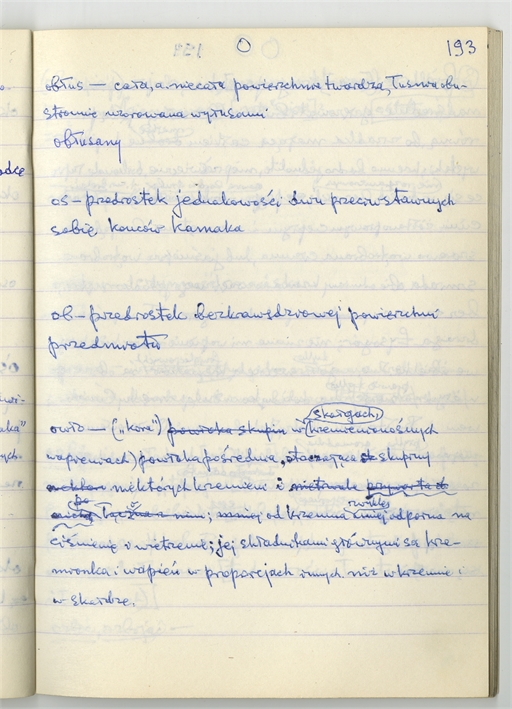 O
193
obłus — cała, a niecała powierzchnia twardza, łusma obu-
stronnie wzorowana wyłusami
obłusany
oś – przedrostek jednakowości dwu przeciwstawnych
sobie końców kamaka
ob – przedrostek bezkrawędziowej powierzchni
przedmiotu
skałgach
owło — („kora") powłoka skupin w (krzemienionośnych
wapieniach) powłoka pośrednia, otaczająca skupiny
niektórych krzemieni i
z nim; mniej od krzemienia zwykle odporna na
ciśnienie i wietrzenie; jej składnikami głównymi są krze-
mionka i wapień w proporcjach innych niż w krzemie i
w skałdze.